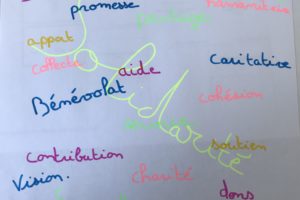 promesse
partage
humanitaire
appat
collecte
aide
caritative
Bénévolat
cohésion
Solidarité
soutien
contribution
Vision.
charité
dons